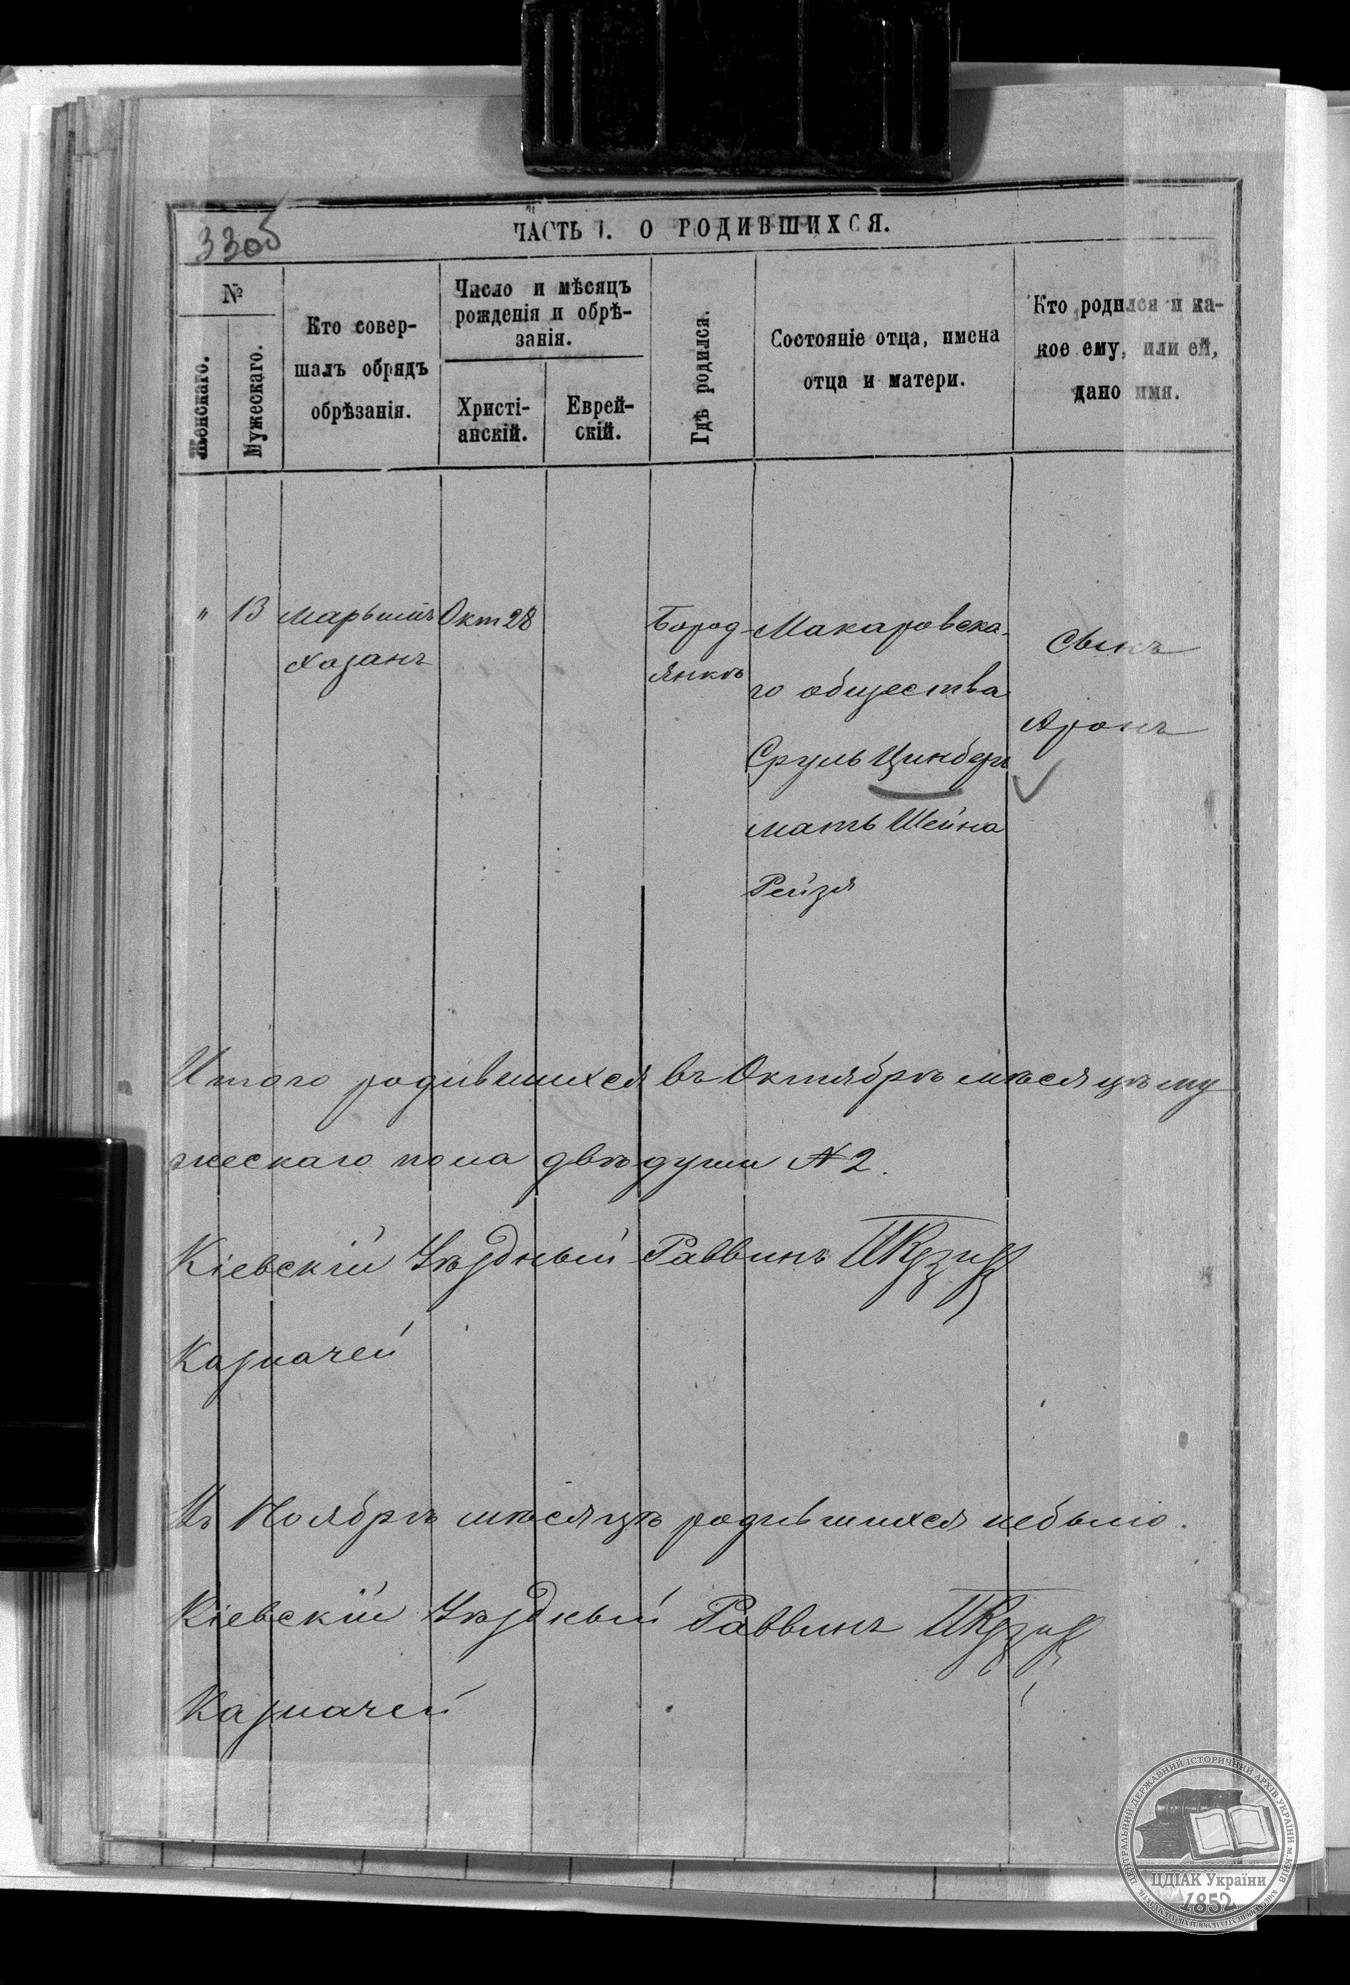 33об
ЧАСТЬ I. О РОДИВШИХСЯ.
№
Женскаго.
Мужескаго.
Кто совер-
шалъ обрядъ
обрѣзанія.
Число и мѣсяцъ
рожденія и обрѣ-
занія.
Христі-
анскій.
Еврей-
скій.
Гдѣ родился.
Состояніе отца, имена
отца и матери.
Кто родился и ка-
кое ему, или ей,
дано имя.
"
13
Хазанъ
Окт 28
Бород-
янкѣ
Макаровска-
го общества
Сруль Цинберъ
мать Шейна
Рейзя
Сынъ
Аронъ
Итого родившихся въ Октябрѣ мѣсяцѣ му
жескаго пола двѣ души № 2.
Кіевскій Уѣздный Раввинъ
Казначей
Въ Ноябрѣ мѣсяцѣ родившихся небыло.
Кіевскій Уѣздный Раввинъ
Казначей
ЦЕНТРАЛЬНИЙ ДЕРЖАВНИЙ ІСТОРИЧНИЙ АРХІВ УКРАЇНИ М. КИЇВ
ЦДІАК України
1852